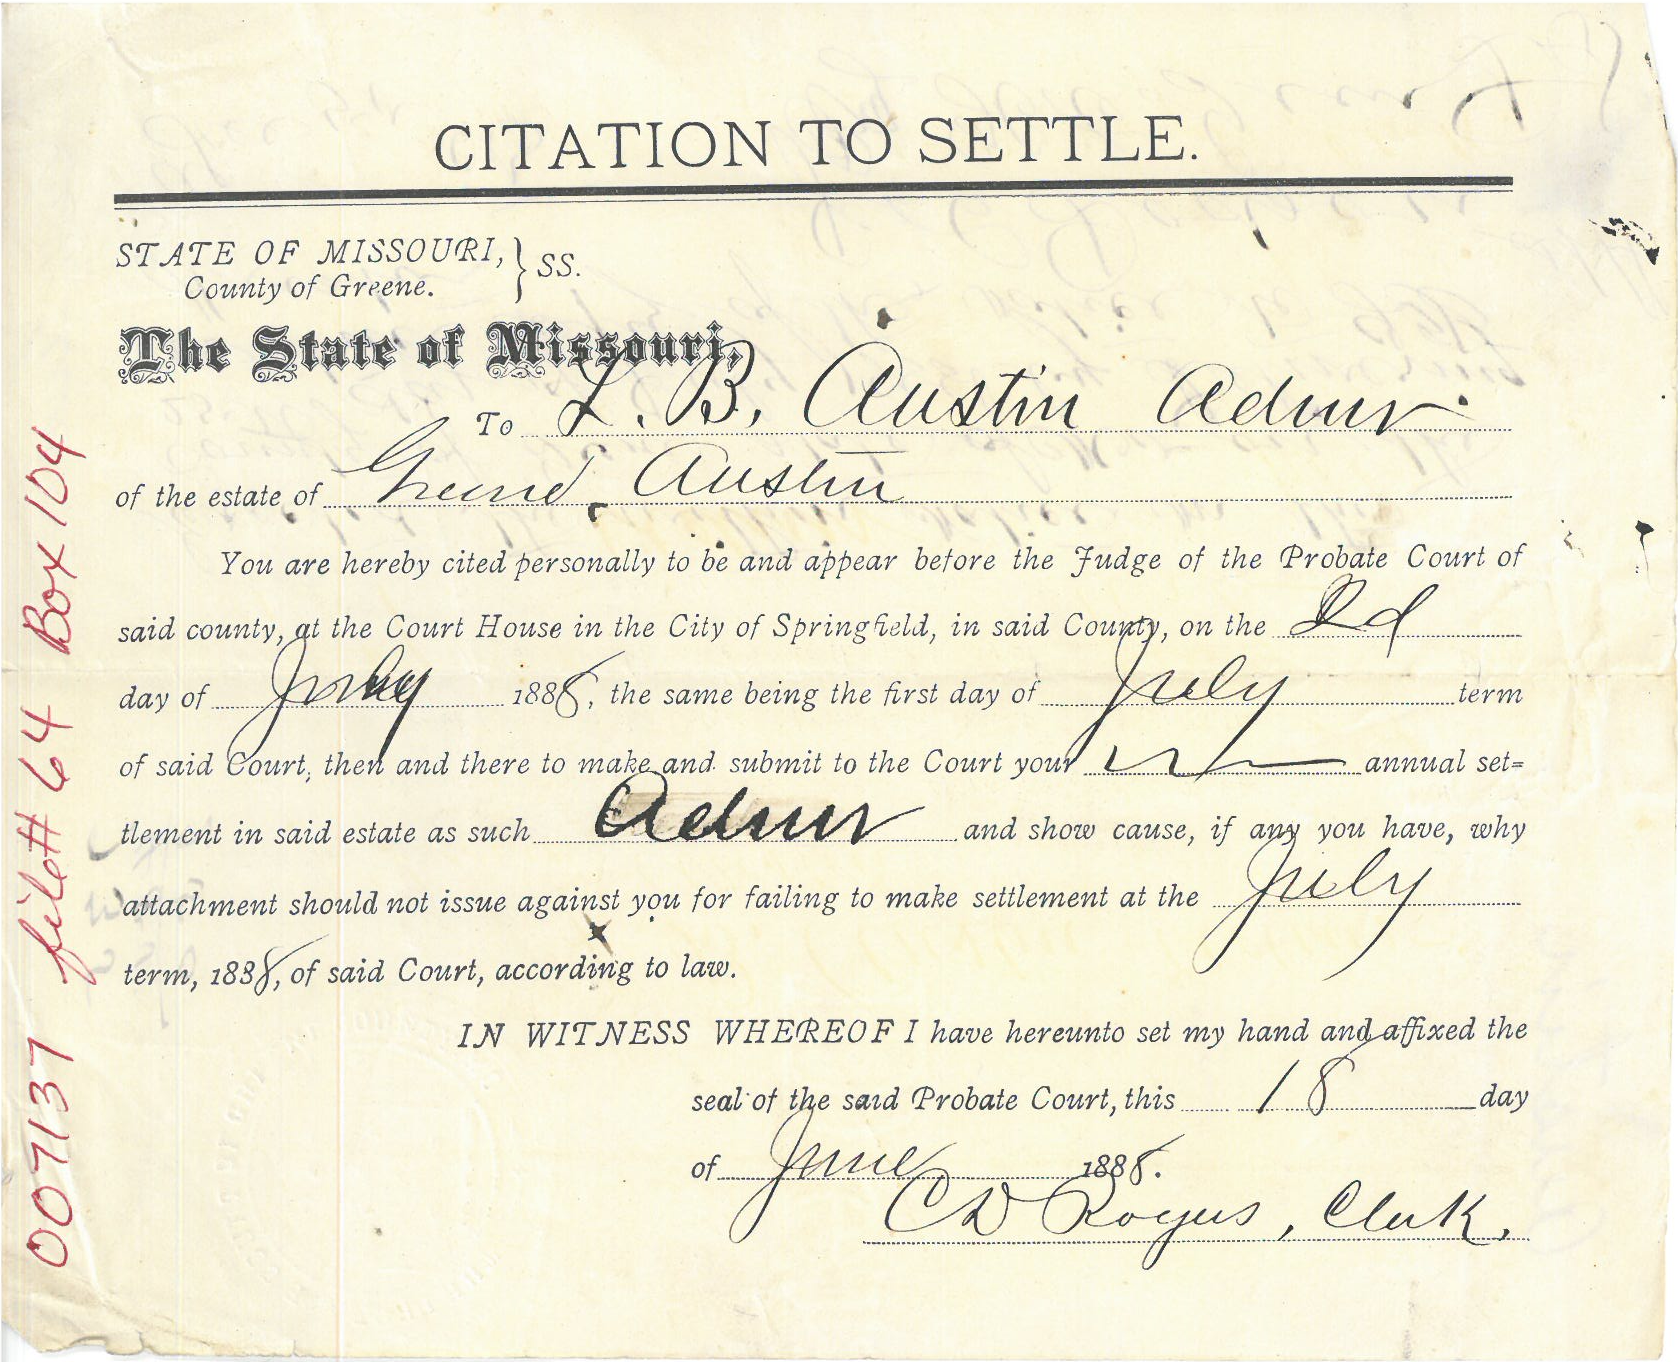 CITATION TO SETTLE.
STATE OF MISSOURI, } SS.
County of Greene.
The State of Missouri,
To L. B. Austin Admr.
of the estate of Austin
You are hereby cited personally to be and appear before the Judge of the Probate Court of
said county, at the Court House in the City of Springfield, in said County, on the 2d
day of July 1888, the same being the first day of July term
of said Court, then and there to make and submit to the Court your annual set=
tlement in said estate as such Admr and show cause, if any you have, why
attachment should not issue against you for failing to make settlement at the July
term, 1888, of said Court, according to law.
IN WITNESS WHEREOF I have hereunto set my hand and affixed the
seal of the said Probate Court, this 18 day
of June 1888.
C D Rogers, Clerk.
007137 file# 64 Box 104